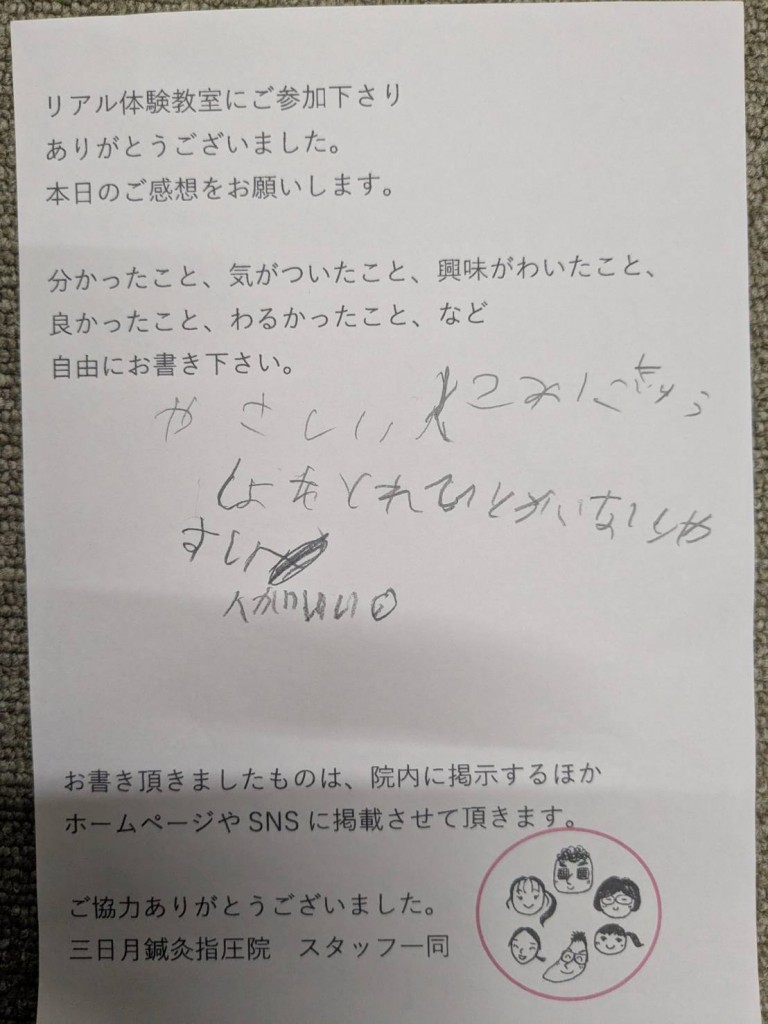 リアル体験教室にご参加下さり
ありがとうございました。
本日のご感想をお願いします。
分かったこと、気がついたこと、興味がわいたこと、
良かったこと、わるかったこと、など
自由にお書き下さい。
やさしい
お書き頂きましたものは、院内に掲示するほか
ホームページやSNSに掲載させて頂きます。
ご協力ありがとうございました。
三日月鍼灸指圧院 スタッフ一同